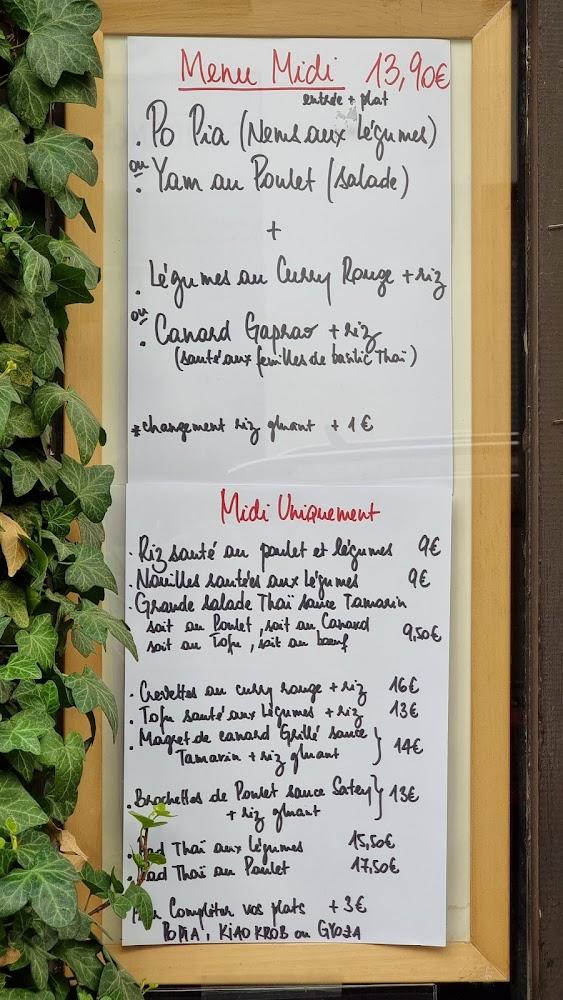 Menu Midi 13,90€
entrée + plat
. Po Pia (Nems aux légumes)
ou
. Yam au Poulet (salade)
+
. Légumes au Curry Rouge + riz
ou
. Canard Gaprao + riz
(sauté aux feuilles de basilic Thaï)
*changement riz gluant + 1€
Midi Uniquement
. Riz sauté au poulet et légumes 9€
. Nouilles sautées aux légumes 9€
. Grande salade Thaï sauce Tamarin
soit au Poulet, soit au Canard
soit au Tofu, soit au bœuf 9,50€
. Crevettes au curry rouge + riz 16€
. Tofu sauté aux légumes + riz 13€
. Magret de canard Grillé sauce
Tamarin + riz gluant } 14€
. Brochettes de Poulet sauce Satey
+ riz gluant } 13€
ad Thaï aux légumes 15,50€
. ad Thaï au Poulet 17,50€
Compléter vos plats + 3€
POPIA, KIAO KROB ou GYOZA